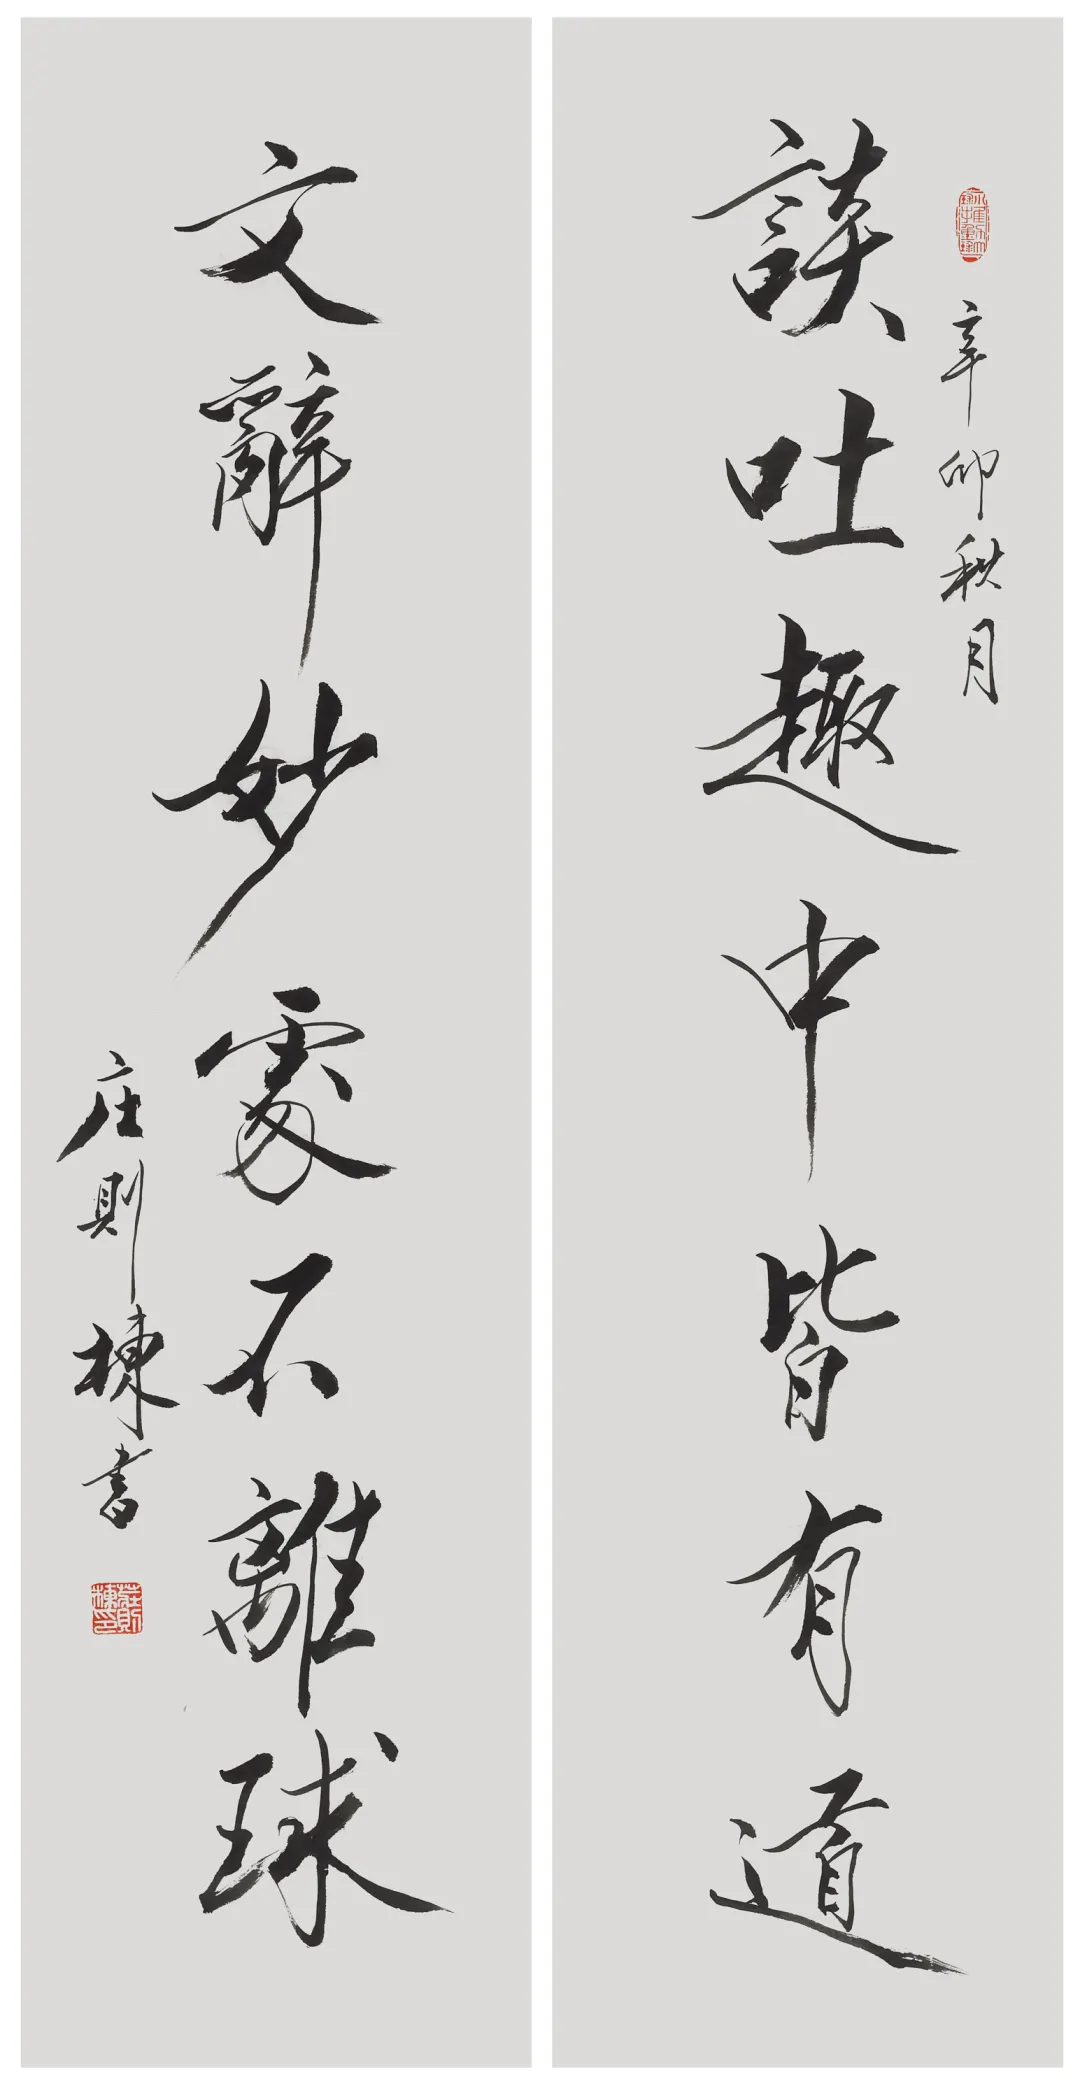 辛卯秋月
談吐趣中皆有道
文辭妙處不離球
庄則棟書
莊則棟印